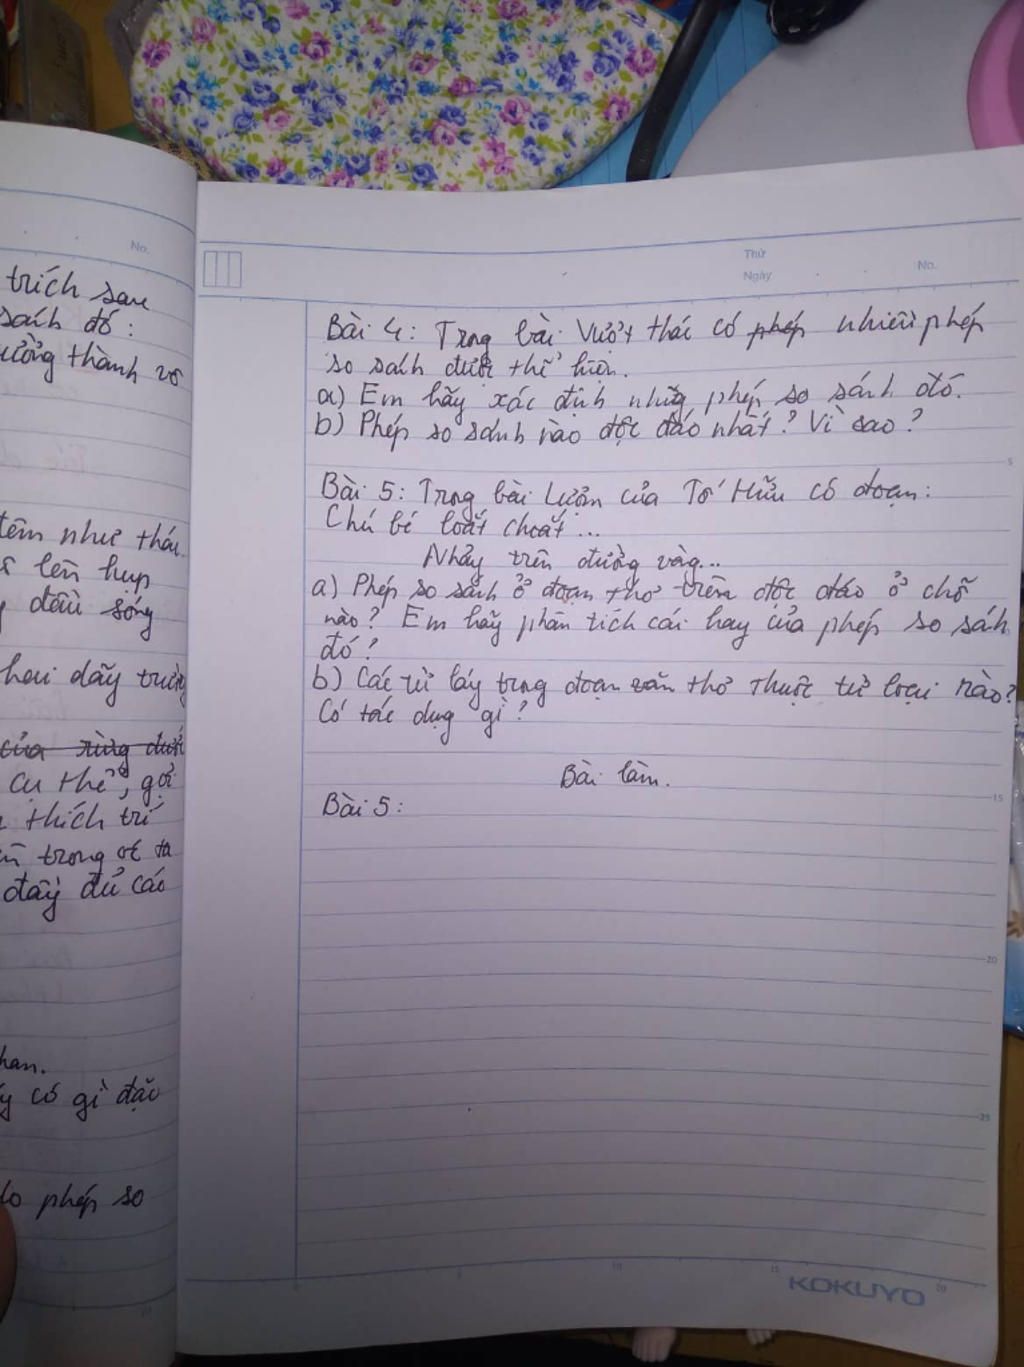 No.
trích sau
sánh đó:
ưởng thành võ
têm như
lên hụp
đầu sóng
hai dãy trường
của rừng đước
cụ thể, gợi
thích trí
trong ta
đầy đủ các
han.
y có gì đặc
do phép so
Thứ
Ngày
No.
Bài 4: Trong bài Vượt thác có phép nhiều phép
so sánh được thể hiện.
a) Em hãy xác định những phép so sánh đó.
b) Phép so sánh nào độc đáo nhất? Vì sao?
5
Bài 5: Trong bài Lượm của Tố Hữu có đoạn:
Chú bé loắt choắt...
Nhảy trên đường vàng...
a) Phép so sánh ở đoạn thơ trên độc đáo ở chỗ
nào? Em hãy phân tích cái hay của phép so sánh
đó?
b) Các từ láy trong đoạn văn thơ thuộc từ loại nào?
Có tác dụng gì?
Bài làm.
15
Bài 5:
20
25
KOKUYO